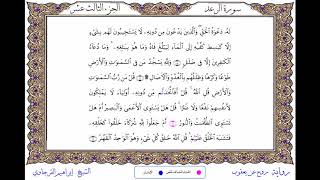 سورة الرعد
الجزء الثالث عشر
لَهُۥ دَعْوَةُ ٱلْحَقِّ وَٱلَّذِينَ يَدْعُونَ مِن دُونِهِۦ لَا يَسْتَجِيبُونَ لَهُم بِشَىْءٍ
إِلَّا كَبَٰسِطِ كَفَّيْهِ إِلَى ٱلْمَآءِ لِيَبْلُغَ فَاهُ وَمَا هُوَ بِبَٰلِغِهِۦ وَمَا دُعَآءُ
ٱلْكَٰفِرِينَ إِلَّا فِى ضَلَٰلٍ وَلِلَّهِ يَسْجُدُ مَن فِى ٱلسَّمَٰوَٰتِ وَٱلْأَرْضِ
طَوْعًا وَكَرْهًا وَظِلَٰلُهُم بِٱلْغُدُوِّ وَٱلْءَاصَالِ قُلْ مَن رَّبُّ ٱلسَّمَٰوَٰتِ
وَٱلْأَرْضِ قُلِ ٱللَّهُ قُلْ أَفَٱتَّخَذْتُم مِّن دُونِهِۦٓ أَوْلِيَآءَ لَا يَمْلِكُونَ
لِأَنفُسِهِمْ نَفْعًا وَلَا ضَرًّا قُلْ هَلْ يَسْتَوِى ٱلْأَعْمَىٰ وَٱلْبَصِيرُ أَمْ هَلْ
تَسْتَوِى ٱلظُّلُمَٰتُ وَٱلنُّورُ أَمْ جَعَلُوا۟ لِلَّهِ شُرَكَآءَ خَلَقُوا۟ كَخَلْقِهِۦ
فَتَشَٰبَهَ ٱلْخَلْقُ عَلَيْهِمْ قُلِ ٱللَّهُ خَٰلِقُ كُلِّ شَىْءٍ وَهُوَ ٱلْوَٰحِدُ ٱلْقَهَّٰرُ
رواية روح عن يعقوب